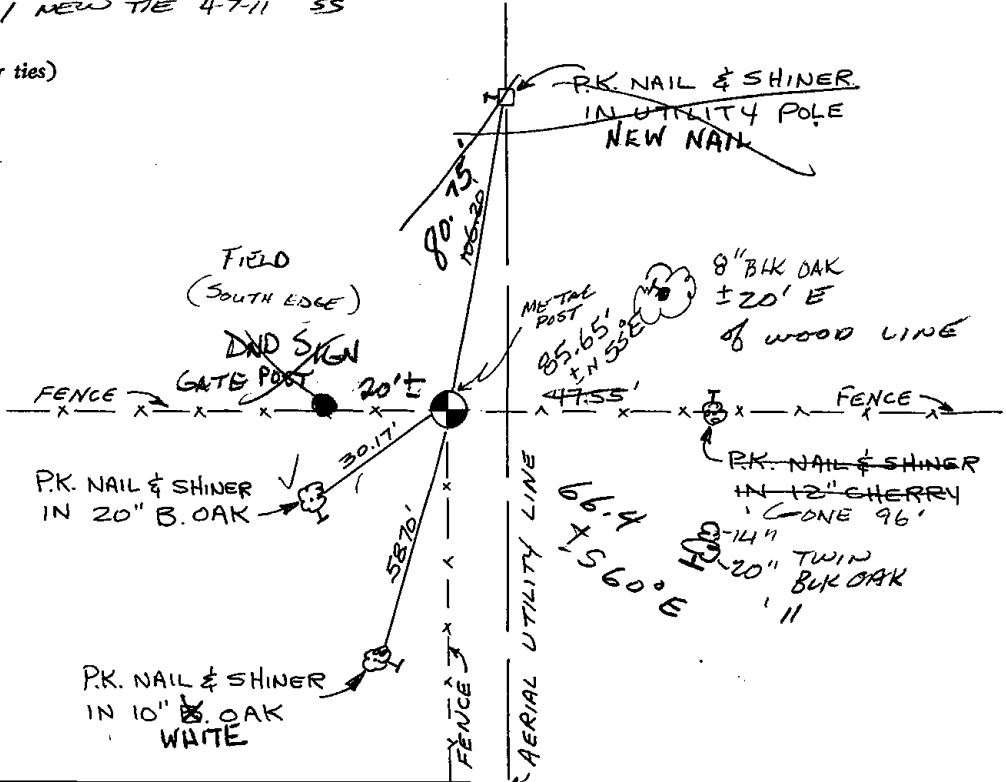 / NEW TIE 4-7-11 SS
r ties)
P.K. NAIL & SHINER
IN UTILITY POLE
NEW NAIL
80.75'
106.20
FIELD
(SOUTH EDGE)
DND SIGN
GATE POST
20'±
METAL
POST
85.65'
±N 55°E
47.55'
8" BLK OAK
±20' E
of WOOD LINE
FENCE
FENCE
30.17'
P.K. NAIL & SHINER
IN 20" B. OAK
P.K. NAIL & SHINER
IN 12" CHERRY
GONE 96'
66.4
± S 60° E
14"
20" TWIN
BLK OAK
'11
58.70'
P.K. NAIL & SHINER
IN 10" B. OAK
WHITE
FENCE
AERIAL UTILITY LINE